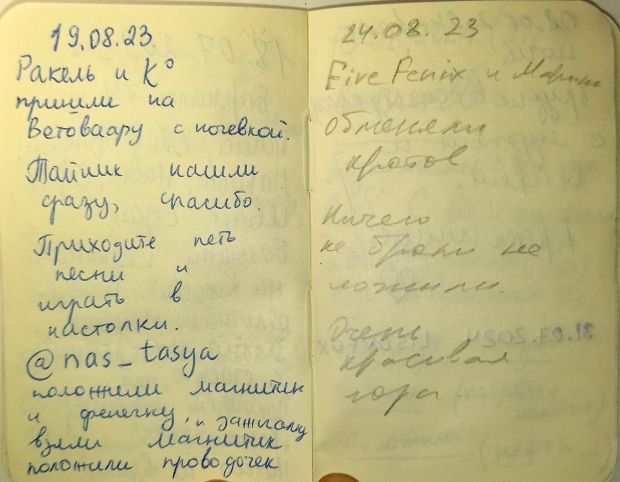 19.08.23
Ракель и К°
пришли на
Ветоваару с ночевкой.
Тайник нашли
сразу, спасибо.
Приходите петь
песни и
играть в
настолки.
@nas_tasya
положили магнитик
и фенечку, и зажигалку
взяли магнитик
положили проводочек
24.08.23
FireFenix и Марина
Обменяли
кротов
Ничего
не брали не
ложили.
Очень
красивая
гора